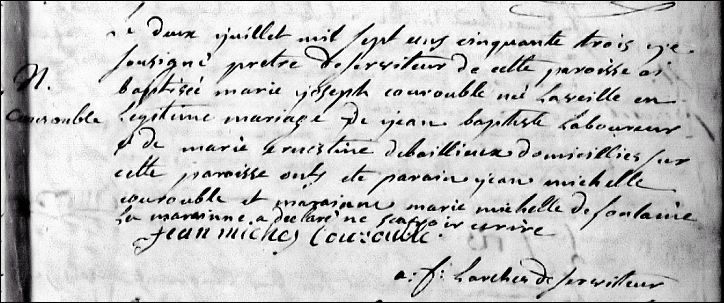 Le deux juillet mil sept cens cinquante trois je
sousigné pretre deserviteur de cette paroisse ai
N.
baptisée marie joseph courouble née la veille en
Courouble
legitime mariage de jean baptiste laboureur
& de marie ernestine debaillieux domicilliés sur
cette paroisse onts eté parain jean michelle
courouble et maraiane marie michelle defontaine
la marainne a declaré ne scavoir ecrire
Jean michel Courouble
deserviteur